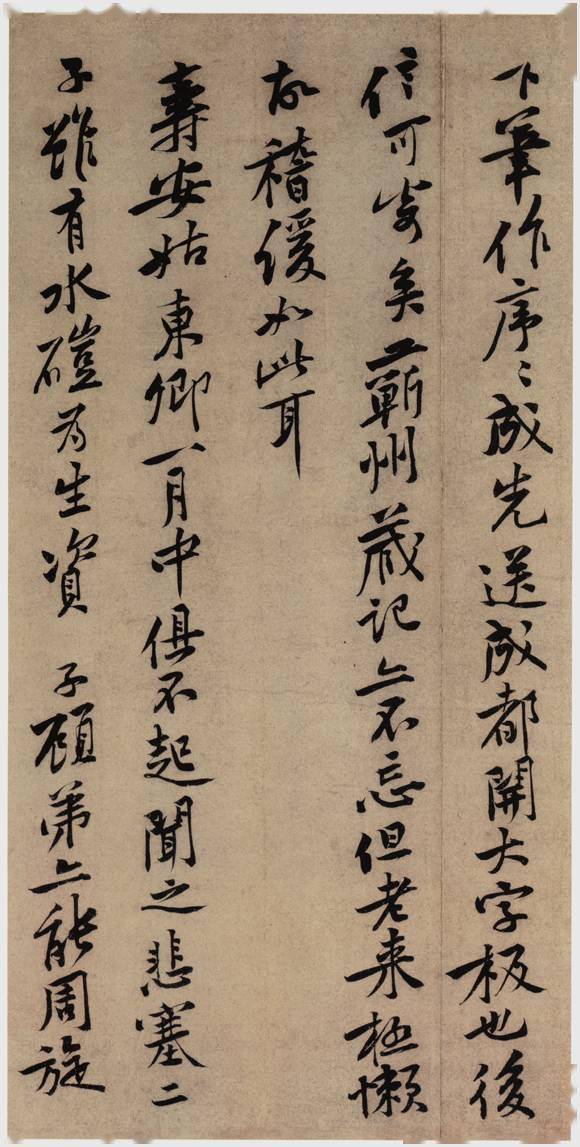 下筆作序〻成先送成都開大字板也後
信可寄矣二蘄州蔵記亦不忘但老来極懶
故稽緩如此耳
壽安姑東卿一月中俱不起聞之悲塞二
子雖有水磑為生資子顧弟亦能周旋